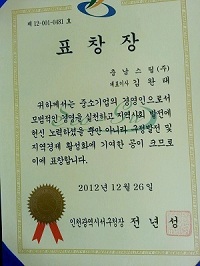 제 12-001-0481 호
표창장
충남스틸(주)
대표이사 김완태
귀하께서는 중소기업의 경영인으로서
모범적인 경영을 실천하고 지역사회 발전에
헌신 노력하셨을 뿐만 아니라 구정발전 및
지역경제 활성화에 기여한 공이 크므로
이에 표창합니다.
2012년 12월 26일
인천광역시서구청장 전년성